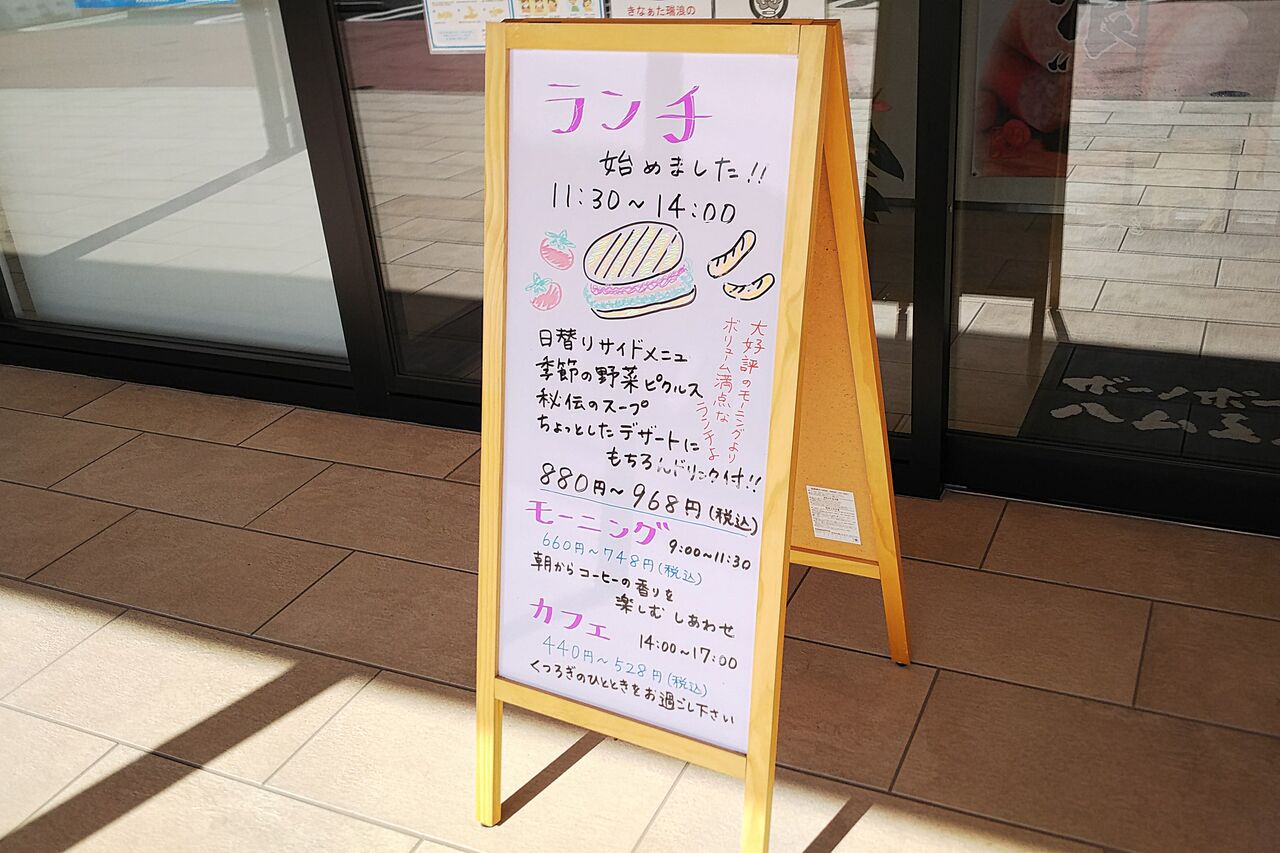 きなぁた瑞浪の
ランチ
始めました!!
11:30～14:00
大好評のモーニングより
ボリューム満点な
ランチよ
日替りサイドメニュ
季節の野菜ピクルス
秘伝のスープ
ちょっとしたデザートに
もちろんドリンク付!!
880円～968円(税込)
モーニング 9:00～11:30
660円～748円(税込)
朝からコーヒーの香りを
楽しむ しあわせ
カフェ 14:00～17:00
440円～528円(税込)
くつろぎのひとときをお過ごし下さい
ボーノポー
ハム工